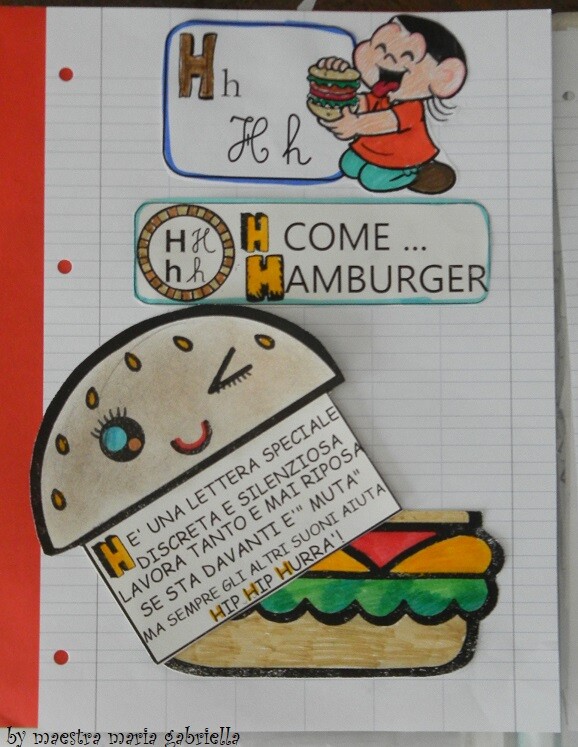 H h
H h
H H
h h
H COME ...
HAMBURGER
H E' UNA LETTERA SPECIALE
DISCRETA E SILENZIOSA
LAVORA TANTO E MAI RIPOSA
SE STA DAVANTI E'" MUTA"
MA SEMPRE GLI ALTRI SUONI AIUTA
HIP HIP HURRA'!
by maestra maria gabriella